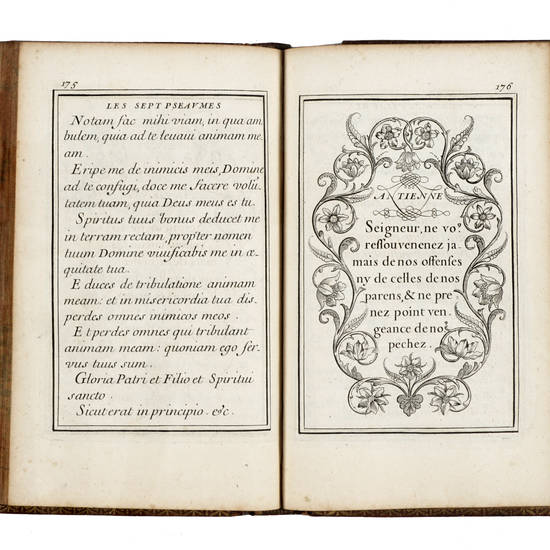 175
LES SEPT PSEAUMES
Notam fac mihi viam, in qua am
bulem, quia ad te leuaui animam me
am.
Eripe me de inimicis meis, Domine
ad te confugi, doce me facere volū
tatem tuam, quia Deus meus es tu.
Spiritus tuus bonus deducet me
in terram rectam, propter nomen
tuum Domine viuificabis me in æ
quitate tua.
E duces de tribulatione animam
meam: et in misericordia tua dis
perdes omnes inimicos meos.
E t perdes omnes qui tribulant
animam meam: quoniam ego ser
vus tuus sum.
Gloria Patri et Filio et Spiritui
sancto.
Sicut erat in principio. &c.
176
ANTIENNE
Seigneur, ne vo⁹
ressouvenenez ja
mais de nos offenses
ny de celles de nos
parens, & ne pre
nez point ven
geance de no⁹
pechez.